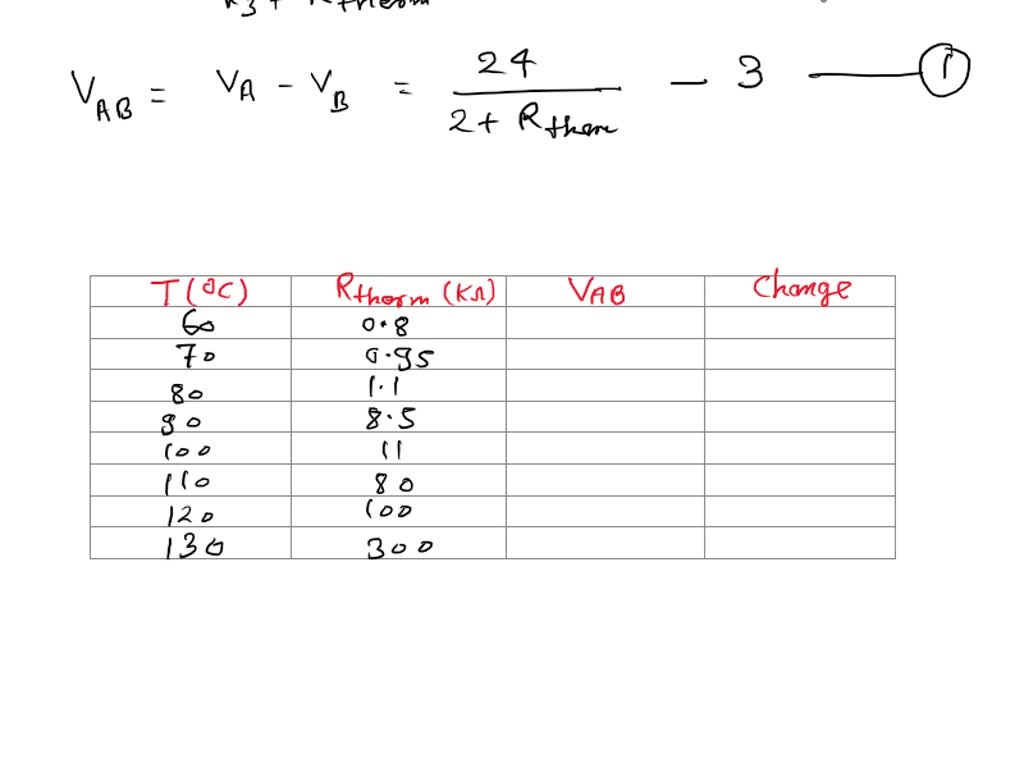 V_AB = V_A - V_B = 24 / (2 + R_therm) - 3 ——— ①
T(°C) R_therm (KΩ) V_AB Change
60 0.8
70 0.95
80 1.1
90 8.5
100 11
110 80
120 100
130 300